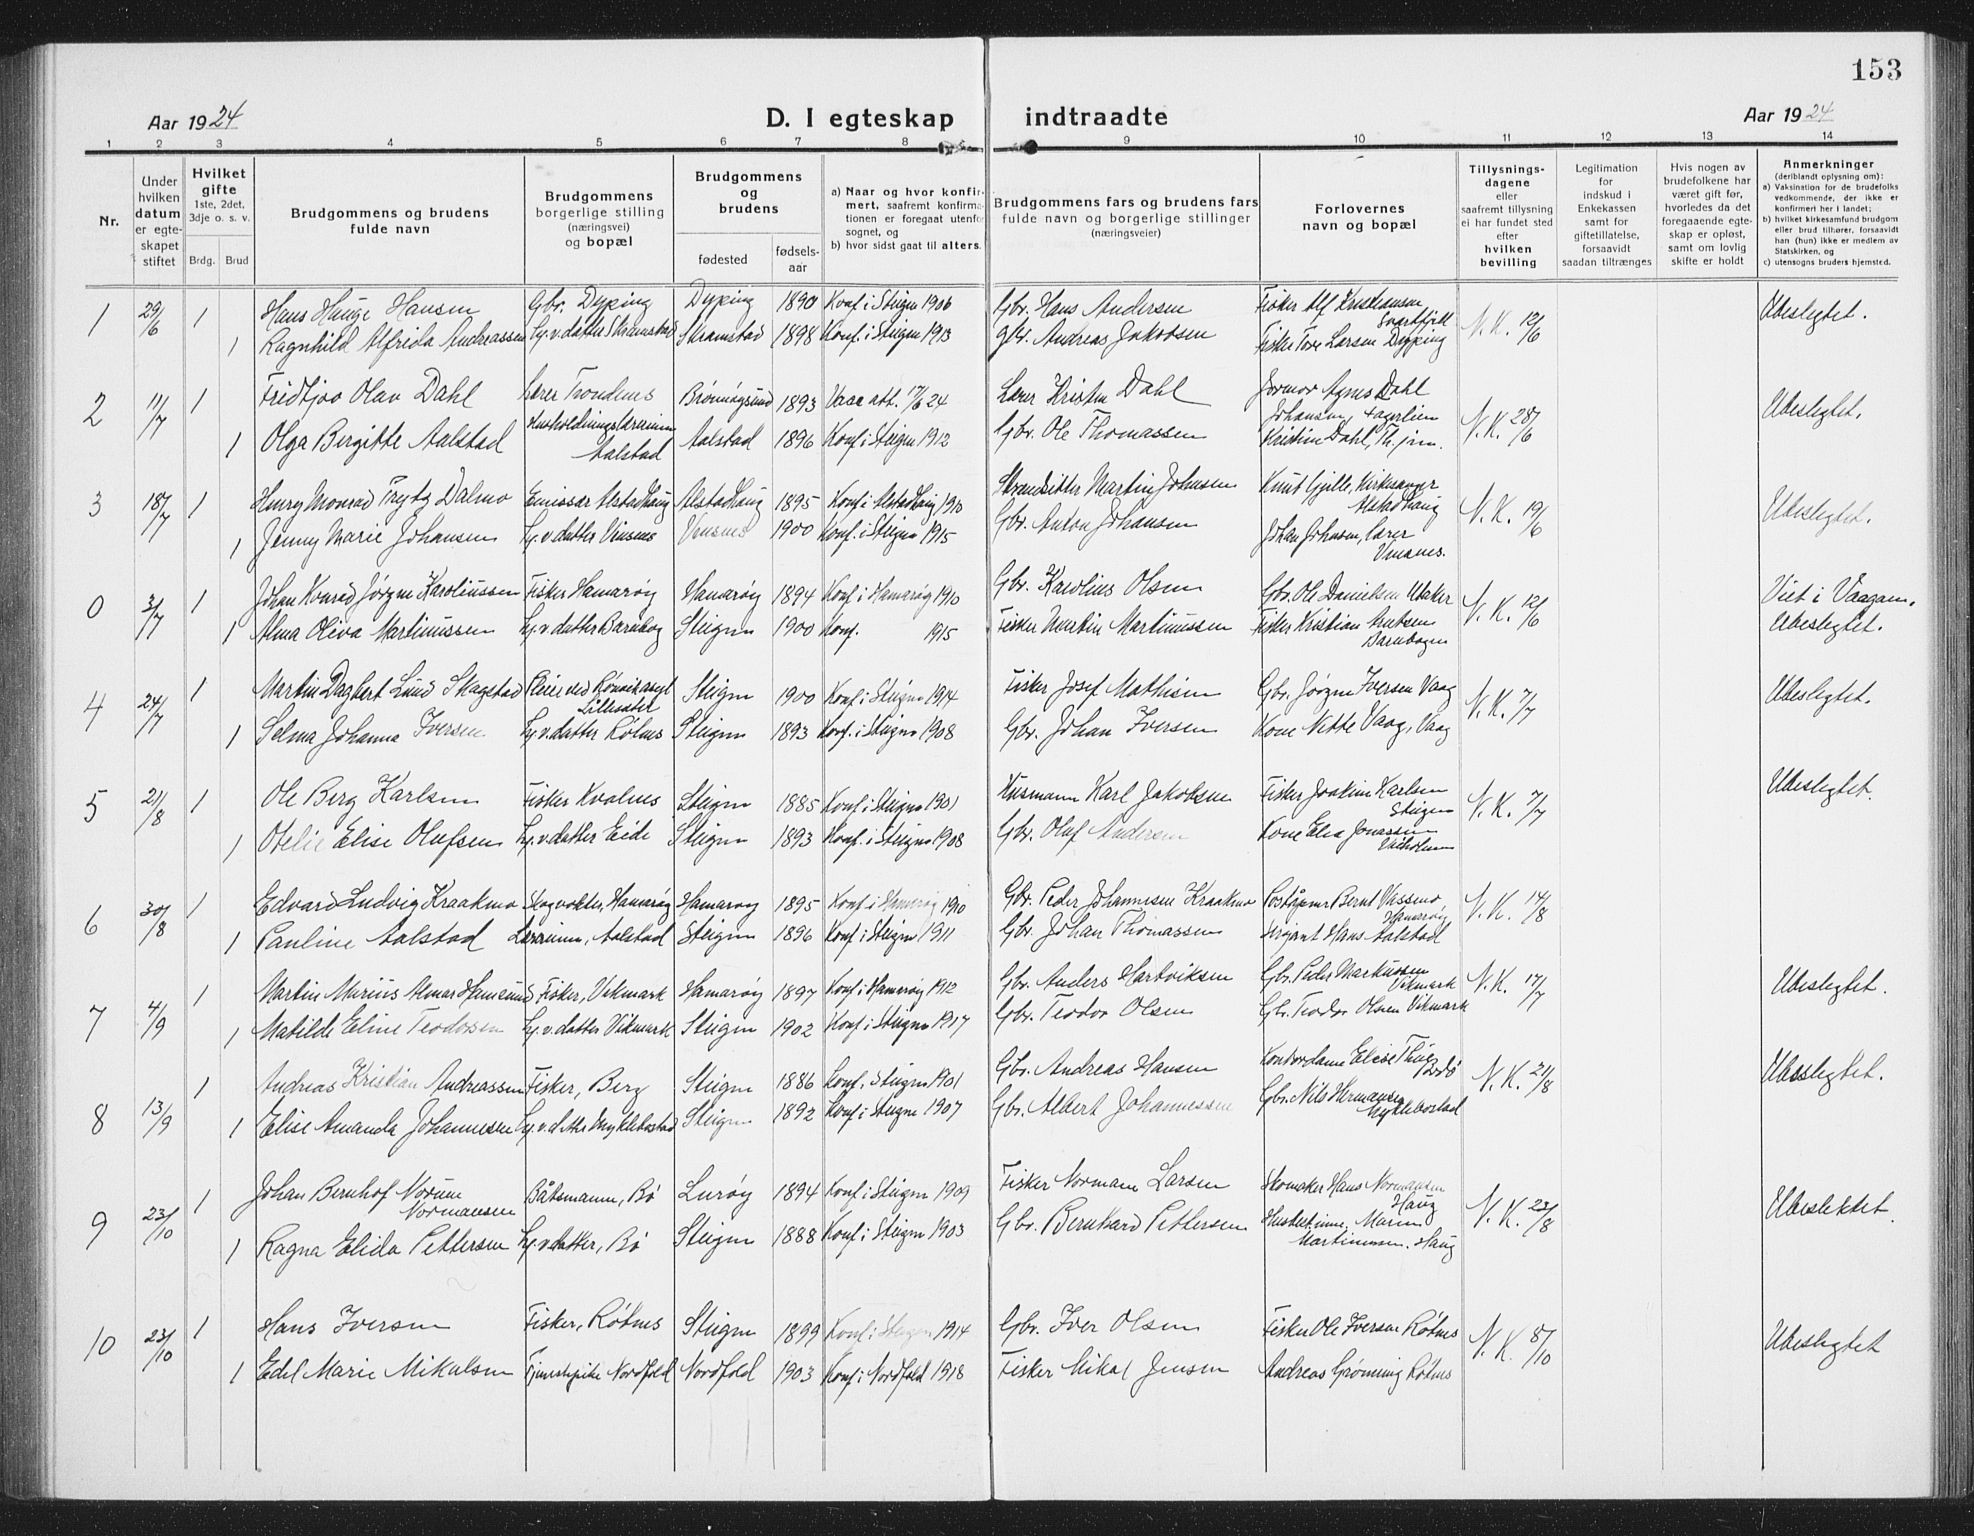 153
Aar 1924
D. I egteskap indtraadte
Aar 1924
1 2 3 4 5 6 7 8 9 10 11 12 13 14
Nr.
Under hvilken datum er egteskapet stiftet
Hvilket gifte
1ste, 2det, 3dje o. s. v.
Brdg. Brud
Brudgommens og brudens fulde navn
Brudgommens borgerlige stilling (næringsvei) og bopæl
Brudgommens og brudens
fødested
fødselsaar
a) Naar og hvor konfirmert, saafremt konfirmationen er foregaat utenfor sognet, og
b) hvor sidst gaat til alters.
Brudgommens fars og brudens fars fulde navn og borgerlige stillinger (næringsveier)
Forlovernes navn og bopæl
Tillysningsdagene eller saafremt tillysning ei har fundet sted efter hvilken bevilling
Legitimation for indskud i Enkekassen samt for giftetillatelse, forsaavidt saadan tiltrænges
Hvis nogen av brudefolkene har været gift før, hvorledes da det foregaaende egteskap er opløst, samt om lovlig skifte er holdt
Anmerkninger (deriblandt oplysning om):
a) Vaksination for de brudefolks vedkommende, der ikke er konfirmeri her i landet;
b) hvilket kirkesamfund brudgom eller brud tilhører, forsaavidt han (hun) ikke er medlem av Statskirken, og
c) utensogns bruders hjemsted.
1 29/6 1 Hans Hauge Hansen Gbr. Dyping Dyping 1890 Konf i Steigen 1906 Gbr. Hans Andersen Fisker Alf Kristiansen Svartfjell N. K. 12/6 Ubeslegtet.
1 Ragnhild Alfrida Andreassen Hj.v. datter Skramstad Skramstad 1898 Konf. i Steigen 1913 Gbr. Andreas Jakobsen Fisker Tore Larsen Dyping
2 11/7 1 Fridtjov Olav Dahl Lærer Trondenes Brønnøysund 1893 Vacc att. 17/6 24 Lærer Kristen Dahl Jormor Agnes Dahl Johansen, Fagerlien N. K. 28/6 Ubeslegtet.
1 Olga Bergitte Aalstad Husholdningslærerinne Aalstad Aalstad 1896 Konf. i Steigen 1912 Gbr. Ole Thomassen Kristine Dahl, Th.jem.
3 18/7 1 Henry Monrad Trytz Dalmo Emissær Alstadhaug Alstadhaug 1895 Konf i Alstadhaug 1910 Strandsitter Martin Johnsen Knut Gjille, Kirkesanger Alstadhaug N. K. 19/6 Ubeslegtet.
1 Jenny Marie Johansen Hj. v. datter Vinsnes Vinsnes 1900 Konf. i Steigen 1915 Gbr. Anton Johansen Johan Johnsen, lærer Vinsnes.
0 3/7 1 Johan Konrad Jörgen Karoliussen Fisker Hamarøy Hamarøy 1894 Konf i Hamarøy 1910 Gbr. Karolius Olsen Gbr. Ole Danielsen Utaker N. K. 12/6 Viet i Vaagan. Ubeslegtet.
1 Alma Oliva Martinussen Hj. v. datter Barnbog Steigen 1900 Konf. 1915 Fisker Martin Martinussen Fisker Kristian Knutsen Barnbogen
4 24/7 1 Martin Dagbert Lund Skagstad Pleier ved Rønvik asyl Lillesæter Steigen 1900 Konf. i Steigen 1914 Fisker Josef Mathisen Gbr. Jörgen Iversen Vaag N. K. 7/7 Ubeslegtet.
1 Selma Johanna Iversen Hj. v. datter Røtnes Steigen 1893 Konf. i Steigen 1908 Gbr. Johan Iversen Kone Nitte Vaag, Vaag
5 21/8 1 Ole Berg Karlsen Fisker Kvalnes Steigen 1885 Konf. i Steigen 1901 Husmann Karl Jakobsen Fisker Joakim Karlsen Steigen N. K. 7/7 Ubeslegtet.
1 Otelie Elise Olufsen Hj. v. datter Eide Steigen 1893 Konf. i Steigen 1908 Gbr. Oluf Andersen Kone Elea Jonassen
6 30/8 1 Edvard Ludvig Kraakmo Skogvokter, Hamarøy Hamarøy 1895 Konf i Hamarøy 1910 Gbr. Peder Johannesen Kraakmo Poståpner Bernt Vassmo, Hamarøy N. K. 14/8
1 Pauline Aalstad Lærerinne, Aalstad Steigen 1896 Konf i Steigen 1911 Gbr. Johan Thomassen Sersjant Hans Aalstad
7 4/9 1 Martin Marius Almar Hamsund Fisker, Vikmark Hamarøy 1897 Konf i Hamarøy 1912 Gbr. Anders Hartviksen Gbr. Peder Markussen Vikmark N. K. 17/7 Ubeslegtet.
1 Matilde Eline Teodorsen Hj. v. datter Vikmark Steigen 1902 Konf i Steigen 1917 Gbr. Teodor Olsen Gbr. Teodor Olsen Vikmark
8 13/9 1 Andreas Kristian Andreassen Fisker, Berg Steigen 1886 Konf. Steigen 1901 Gbr. Andreas Hansen Kontordame Elise Thue Bodø N. K. 21/8 Ubeslegtet.
1 Elise Amanda Johannessen Hj. v. datter Myklebostad Steigen 1892 Konf i Steigen 1907 Gbr. Albert Johannessen Gbr. Nils Hermansen Myklebostad
9 23/10 1 Johan Bernhof Norum Normansen Båtsmann, Bø Lurøy 1894 Konf i Steigen 1909 Fisker Normann Larsen Skomaker Hans Normansen Haug N. K. 23/8 Ubeslektet.
1 Ragna Elida Pettersen Hj. v datter, Bø Steigen 1888 Konf. i Steigen 1903 Gbr. Bernhard Pettersen Husbestinne, Maren Martinussen. Haug
10 23/10 1 Hans Iversen Fisker, Røtnes Steigen 1899 Konf. i Steigen 1914 Gbr. Iver Olsen Fisker Ole Iversen Røtnes N. K. 8/10 Ubeslegtet
1 Edel Marie Mikalsen Tjenestepike Nordfold Nordfold 1903 Konf. i Nordfold 1918 Fisker Mikal Jensen Andreas Grønning Røtnes